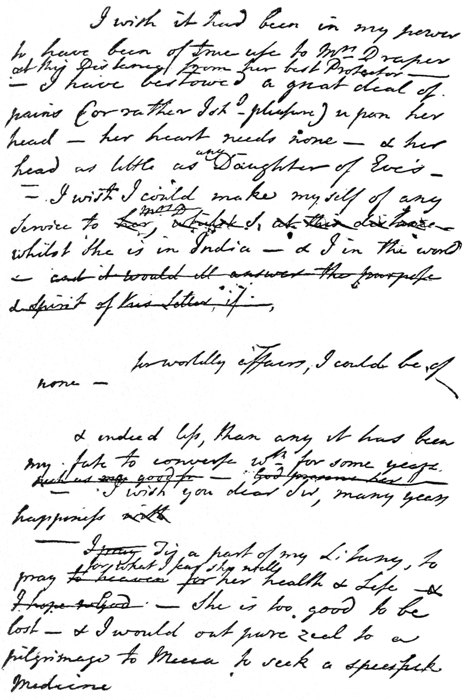 I wish it had been in my power
to have been of true use to Mrs Draper
at this Distance from her best Protector —
— I have bestowed a great deal of
pains (or rather I shd — pleasure) upon her
head — her heart needs none — & her
head as little as any Daughter of Eve's —
— I wish I could make myself of any
Service to her Mrs D whilst I, at this distance —
whilst she is in India — & I in the world
— and it would ill answer the purpose
& spirit of this Letter, if —,
for worldly affairs, I could be of
none —
& indeed less, than any it has been
my fate to converse wth for some years.
such as — God preserve her
— I wish you dear Sir, many years
happiness with
I pray Tis a part of my Litany, to
for what I can
pray to heaven for her health & Life — &
I hope to God — She is too good to be
lost — & I would out pure zeal to a
pilgrimage to Mecca to seek a
Medicine